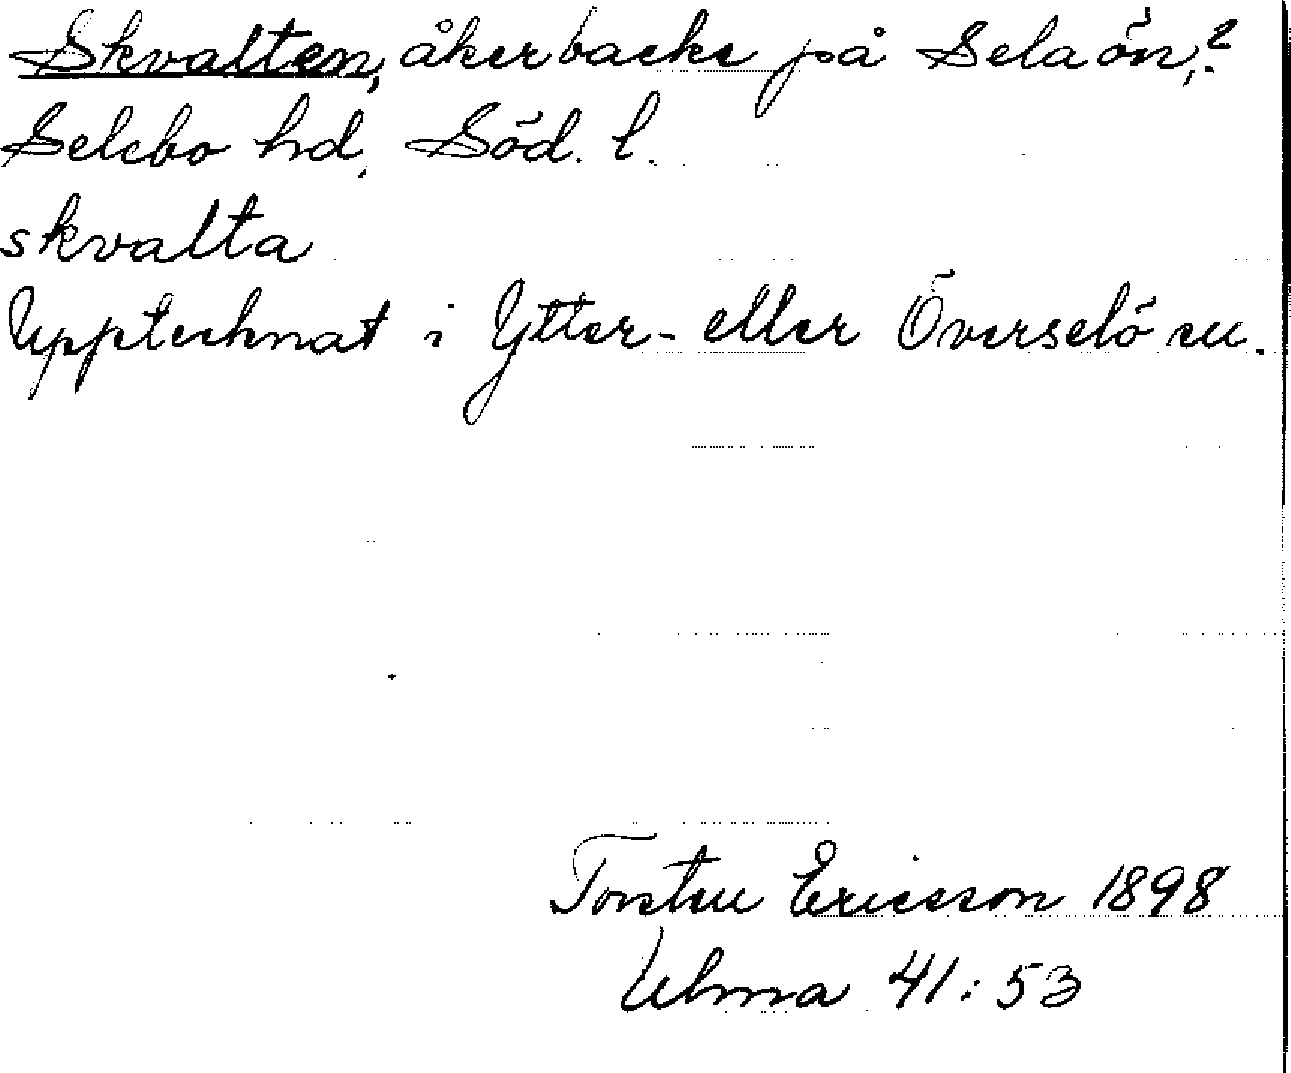 Skvalten, åkerbacke på Selaön,?
Selebo hd, Söd. l.
skvalta
Upptecknat i Ytter- eller Överselö sn.
Torsten Ericsson 1898
Ulma 41:53